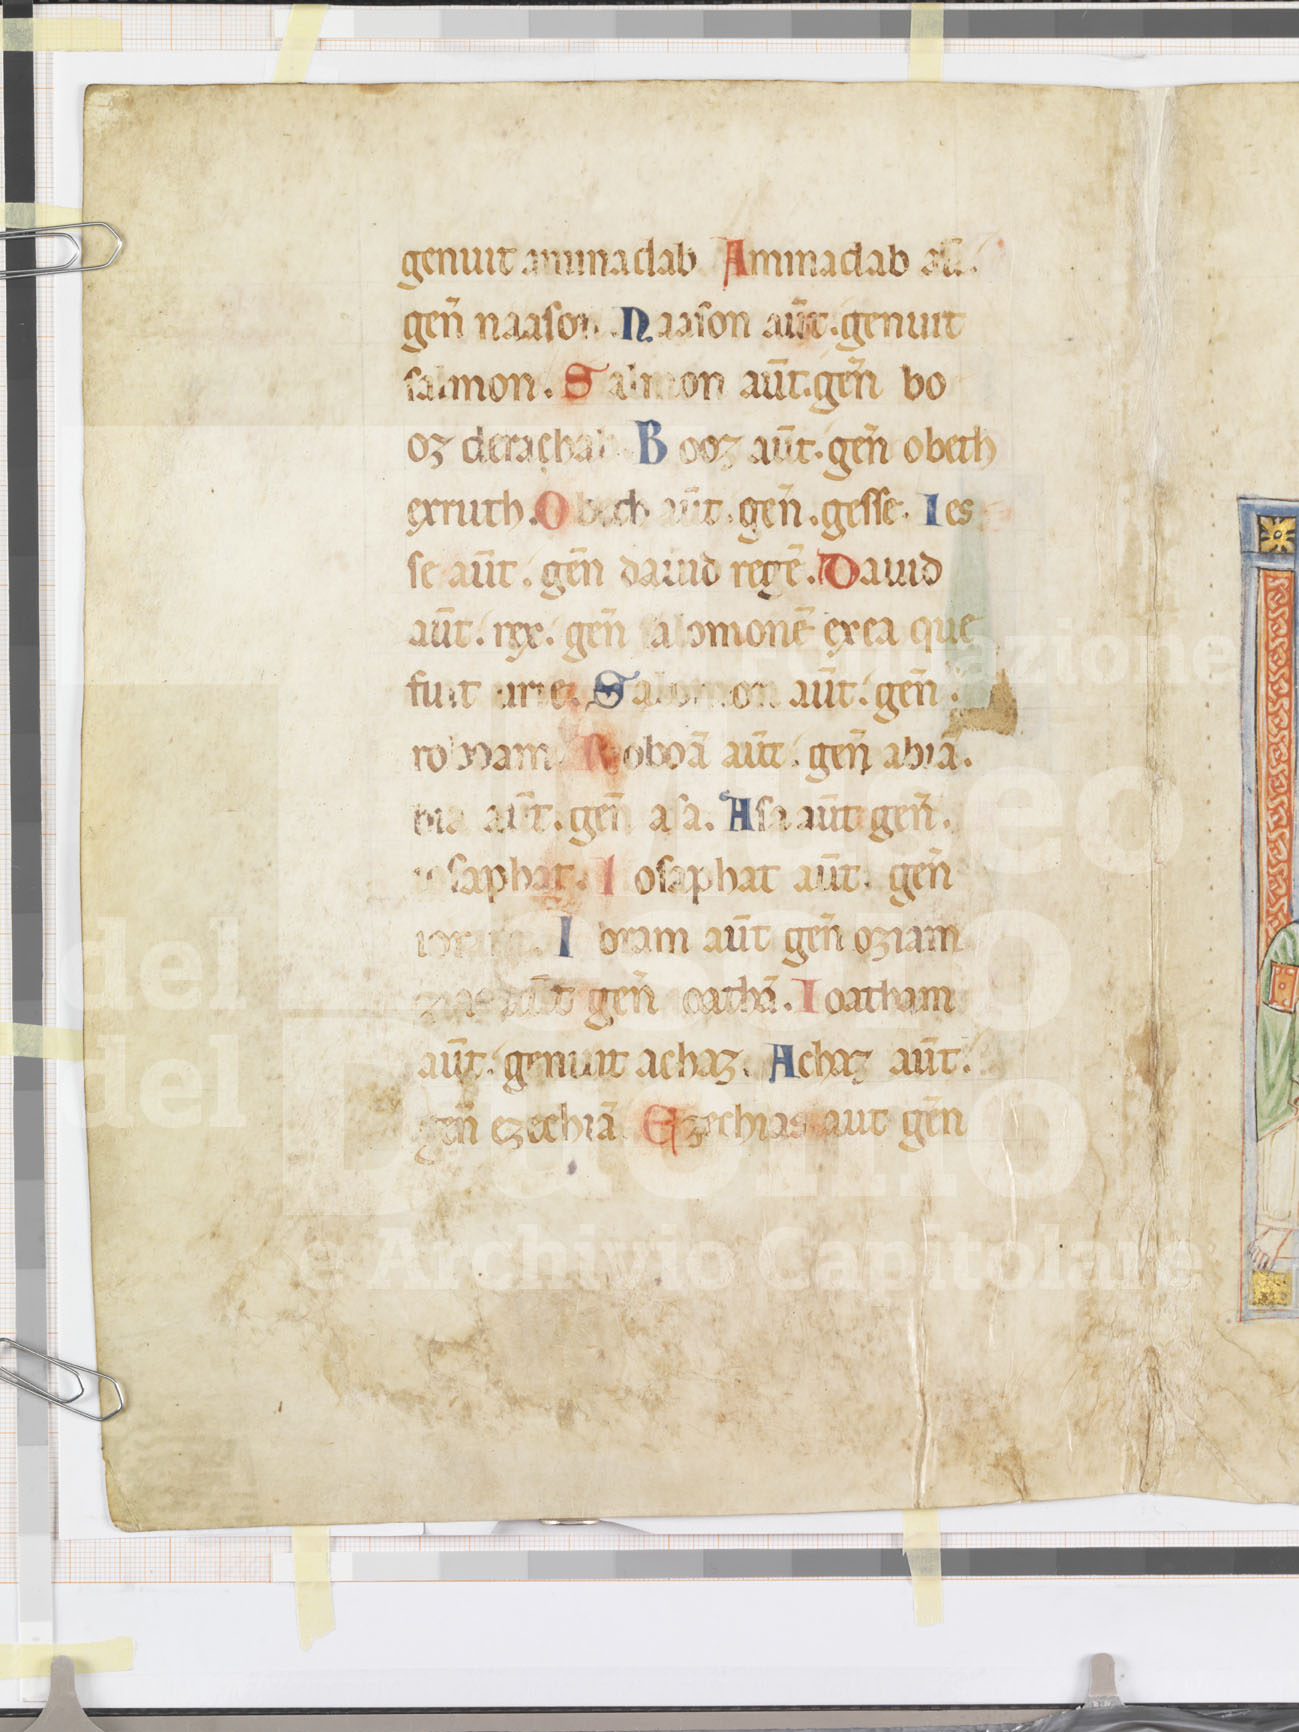 genuit aminadab Aminadab aū.
geñ naason. Naason aūt. genuit
salmon. Salmon aūt. geñ bo
oz derachab Booz aūt. geñ obeth
exruth. Obeth aūt. geñ. gesse. Ies
se aūt. geñ dauid regē. Dauid
aūt. rex. geñ salomonē exea que
fuit urie. Salomon aūt. geñ.
roboam Roboā aūt. geñ abiā.
bia aūt. geñ asa. Asa aūt geñ.
iosaphat. Iosaphat aūt. geñ
ioram. Ioram aūt geñ oziam
aūt geñ ioathā. Ioatham
aūt. genuit achaz. Achaz aūt.
geñ ezechiā Ezechias aut geñ
Fondazione
Museo
del Tesoro
del Duomo
e Archivio Capitolare